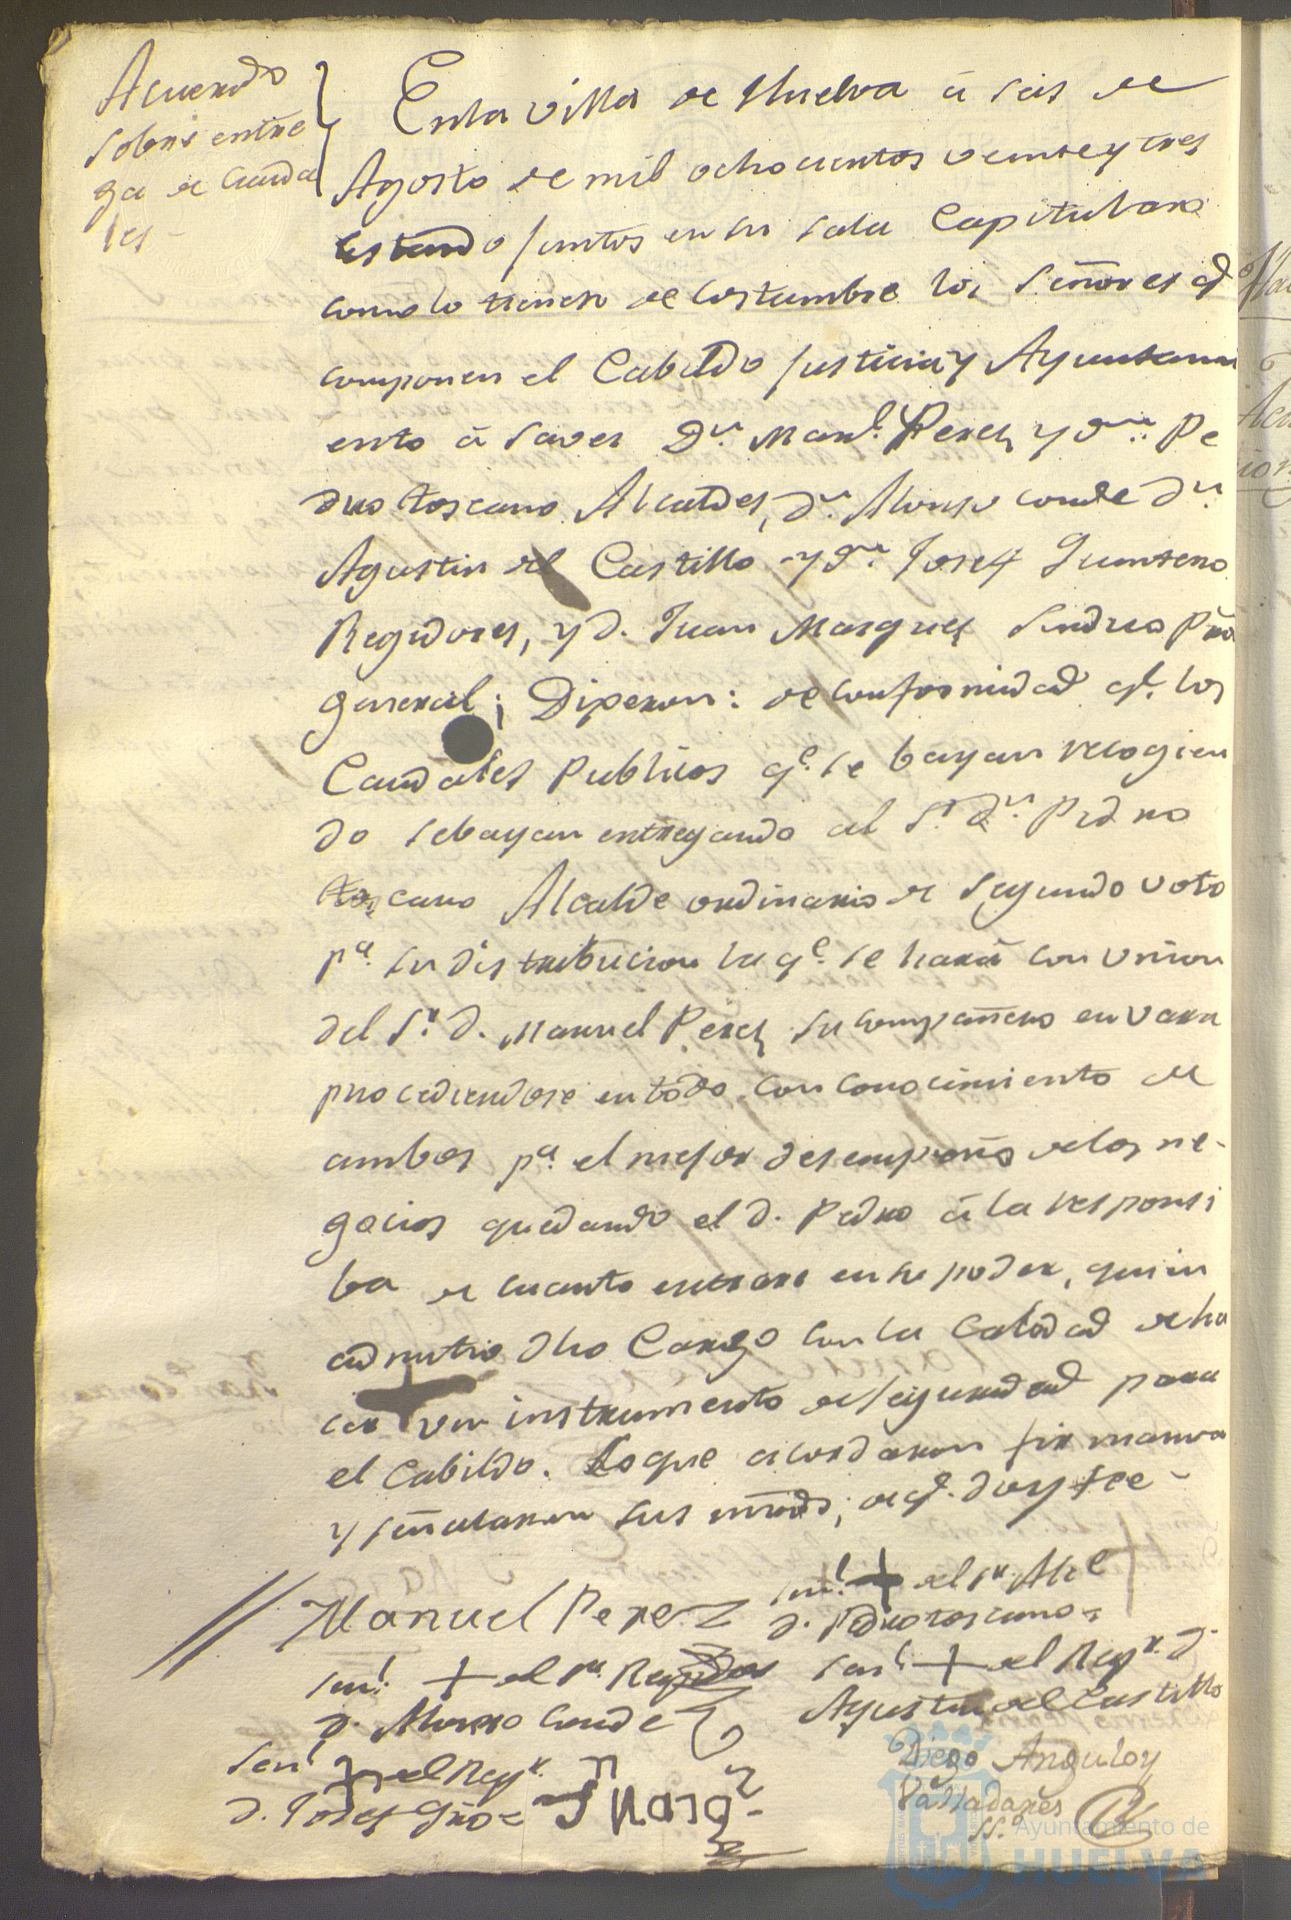 Acuerdo
sobre entre
ga de Cauda
les -
En la villa de Huelva á seis de
Agosto de mil ochocientos veinte y tres
estando juntos en su sala Capitular
como lo tienen de costumbre los Señores qe
componen el Cabildo Justicia y Ayuntami
ento á saver Dn. Manl. Perez y dn. Pe
dro toscano Alcaldes, dn. Alonso conde dn.
Agustin del Castillo y dn. Josef Quintero
Regidores, y d. Juan Marquez Sindico Pror
general; Dixeron: de conformidad qe. los
Caudales Publicos qe. se bayan recogien
do se bayan entregando al Sr. dn. Pedro
toscano Alcalde ordinario de segundo voto
pa. su distribucion la qe. se hará con union
del Sr. d. Manuel Perez su compañero en vara
procediendose en todo con conocimiento de
ambos pa. el mejor desempeño de los ne-
gocios quedando el d. Pedro á la responsi
ba de cuanto entrare en su poder, quien
admitio dho Cargo con la Calidad de ha
cer un instrumento de seguridad para
el Cabildo. Lo que acordaron firmaron
y señalaron sus mrds; de qe. doy fee -
Manuel Perez
señl. + del Sr. Alce
d. Pedro toscano
señl. + del Sr. Regidor
d. Alonso Conde
señl. + del Regr. d.
Agustin del Castillo
señl + del Regr.
d. Josef Qro
J Marqz
Diego Angulo y
Valladares
SS.
Ayuntamiento de
HUELVA